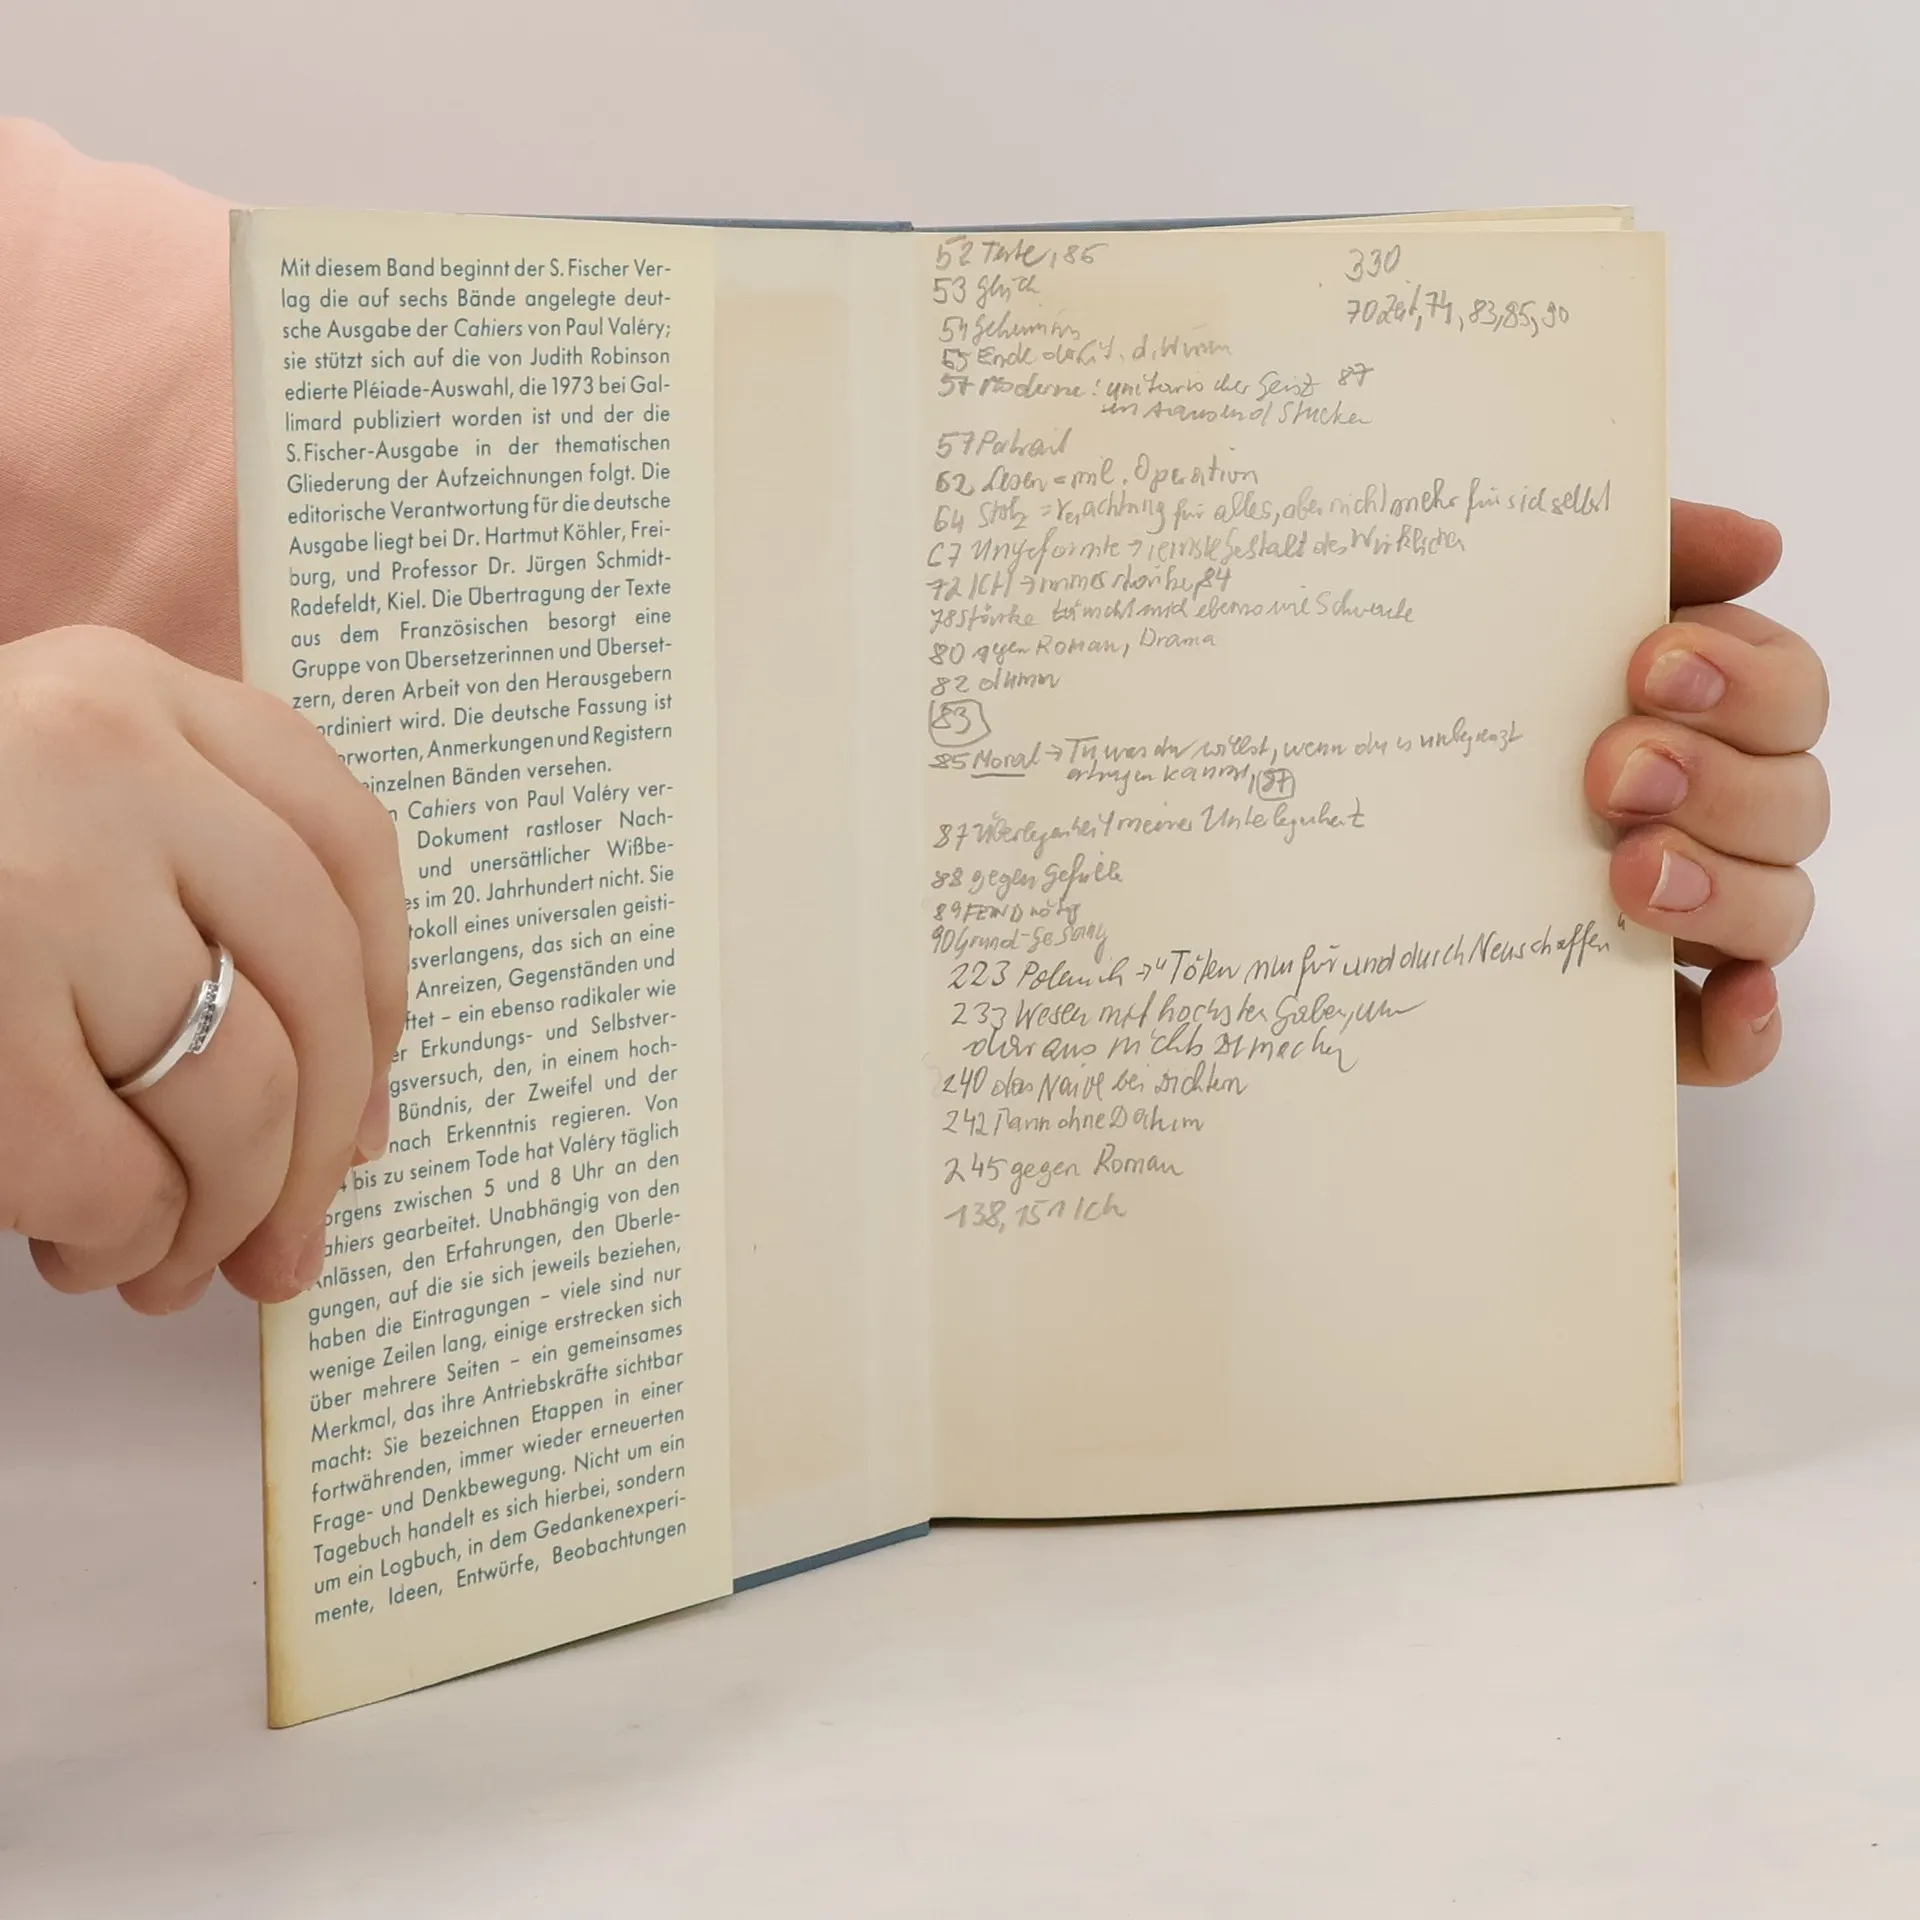 Mit diesem Band beginnt der S. Fischer Ver-
lag die auf sechs Bände angelegte deut-
sche Ausgabe der Cahiers von Paul Valéry;
sie stützt sich auf die von Judith Robinson
edierte Pléiade-Auswahl, die 1973 bei Gal-
limard publiziert worden ist und der die
S. Fischer-Ausgabe in der thematischen
Gliederung der Aufzeichnungen folgt. Die
editorische Verantwortung für die deutsche
Ausgabe liegt bei Dr. Hartmut Köhler, Frei-
burg, und Professor Dr. Jürgen Schmidt-
Radefeldt, Kiel. Die Übertragung der Texte
aus dem Französischen besorgt eine
Gruppe von Übersetzerinnen und Überset-
zern, deren Arbeit von den Herausgebern
ordiniert wird. Die deutsche Fassung ist
orworten, Anmerkungen und Registern
einzelnen Bänden versehen.
n Cahiers von Paul Valéry ver-
Dokument rastloser Nach-
und unersättlicher Wißbe-
es im 20. Jahrhundert nicht. Sie
tokoll eines universalen geisti-
sverlangens, das sich an eine
Anreizen, Gegenständen und
ftet – ein ebenso radikaler wie
er Erkundungs- und Selbstver-
gsversuch, den, in einem hoch-
Bündnis, der Zweifel und der
nach Erkenntnis regieren. Von
4 bis zu seinem Tode hat Valéry täglich
orgens zwischen 5 und 8 Uhr an den
ahiers gearbeitet. Unabhängig von den
Anlässen, den Erfahrungen, den Überle-
gungen, auf die sie sich jeweils beziehen,
haben die Eintragungen – viele sind nur
wenige Zeilen lang, einige erstrecken sich
über mehrere Seiten – ein gemeinsames
Merkmal, das ihre Antriebskräfte sichtbar
macht: Sie bezeichnen Etappen in einer
fortwährenden, immer wieder erneuerten
Frage- und Denkbewegung. Nicht um ein
Tagebuch handelt es sich hierbei, sondern
um ein Logbuch, in dem Gedankenexperi-
mente, Ideen, Entwürfe, Beobachtungen
52 Texte, 86
53 Glück
54 Geheimnis
55 Ende
57 Moderne: unitarischer Geist 87
in tausend Stücken
57 Portrait
62 Lesen = mil. Operation
64 Stolz = Verachtung für alles, aber nicht mehr für sich selbst
67 Ungeformte → reinste Gestalt des Wirklichen
72 ICH → immer stärker, 84
78 Stärke täuscht mich ebenso wie Schwäche
80 gegen Roman, Drama
82 dumm
83
85 Moral → Tu, was du willst, wenn du es unbegrenzt
ertragen kannst, 87
87 Überlegenheit meiner Unterlegenheit
88 gegen Gefühle
89 FEIND nötig
90 Grund-Gesang
223 Polemik → "Töten nur für und durch Neuschaffen"
233 Wesen mit höchsten Gaben, um
daraus nichts zu machen
240 das Naive bei Dichtern
242 Mann ohne
245 gegen Roman
138, 151 Ich
330
70 Zeit, 74, 83, 85, 90